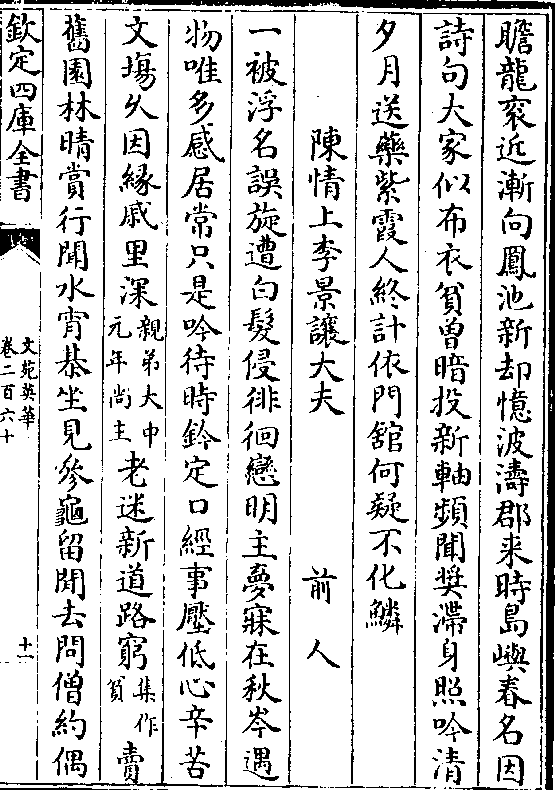 瞻龍衮近漸向鳳池新却憶波濤郡来時島嶼春名因
詩句大家似布衣貧曽暗投新軸頻聞奬滯身照吟清
夕月送藥紫霞人終計依門舘何疑不化鱗
陳情上李景讓大夫　前人
一被浮名誤旋遭白髮侵徘徊戀明主夢寐在秋岑遇
物唯多感居常只是吟待時鈐定口經事壓低心辛苦
文塲久因緣戚里深親弟大中元年尚主老迷新道路窮集作貧賣
舊園林晴賞行聞水宵棊坐見參龜留聞去問僧約偶
欽定四庫全書
文苑英華
卷二百六十
十一